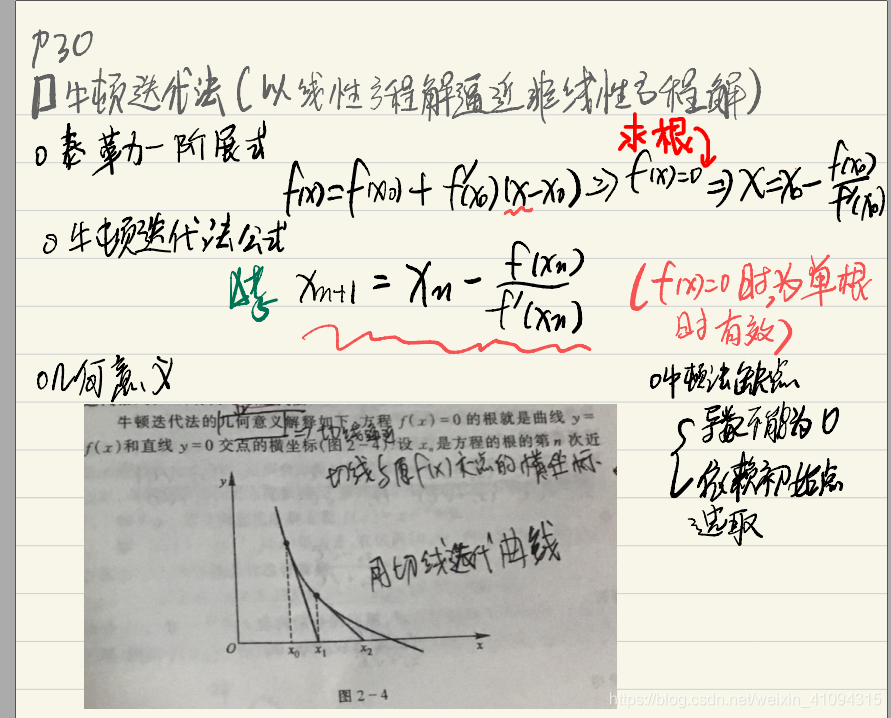 P30
牛顿迭代法(以线性方程解逼近非线性方程解)
泰勒一阶展式
求根
f(x)=f(x0)+f'(x0)(x-x0)⇒f(x)=0⇒x=x0-f(x0)/f'(x0)
牛顿迭代法公式
x_{n+1} = x_n - f(x_n)/f'(x_n)
(f(x)=0时,为单根
时有效)
几何意义
牛顿法缺点
导数不能为0
依赖初始点
选取
牛顿迭代法的几何意义解释如下:方程 f(x)=0的根就是曲线 y=
f(x)和直线 y=0交点的横坐标(图2-4).设 xₙ是方程的根的第 n 次近
切线与原f(x)交点的横坐标.
用切线迭代曲线
y
O x0 x1 x2 x
图2-4
https://blog.csdn.net/weixin_41094315